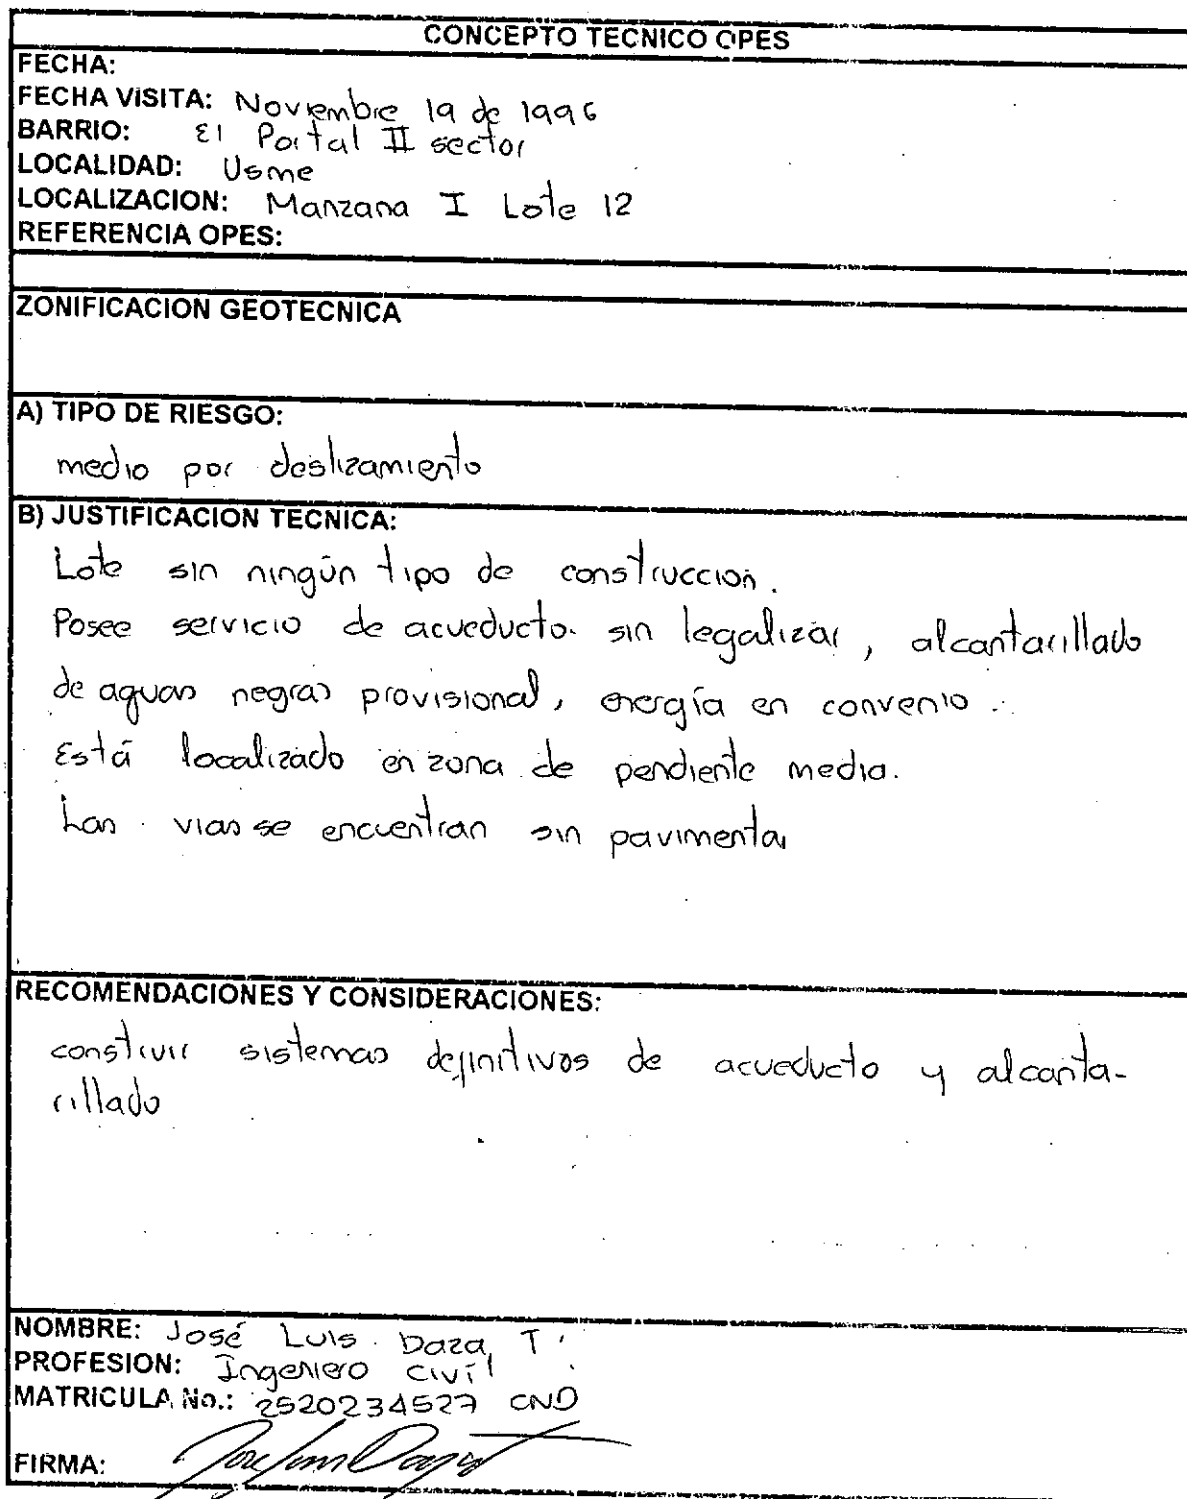 CONCEPTO TECNICO OPES
FECHA:
FECHA VISITA: Noviembre 19 de 1996
BARRIO: El Portal II sector
LOCALIDAD: Usme
LOCALIZACION: Manzana I Lote 12
REFERENCIA OPES:
ZONIFICACION GEOTECNICA
A) TIPO DE RIESGO:
medio por deslizamiento
B) JUSTIFICACION TECNICA:
Lote sin ningún tipo de construccion.
Posee servicio de acueducto sin legalizar, alcantarillado
de aguas negras provisional, energía en convenio.
Está localizado en zona de pendiente media.
Las vias se encuentran sin pavimentar
RECOMENDACIONES Y CONSIDERACIONES:
construir sistemas definitivos de acueducto y alcanta-
rillado
NOMBRE: José Luis Daza T.
PROFESION: Ingeniero civíl
MATRICULA No.: 2520234527 CND
FIRMA: